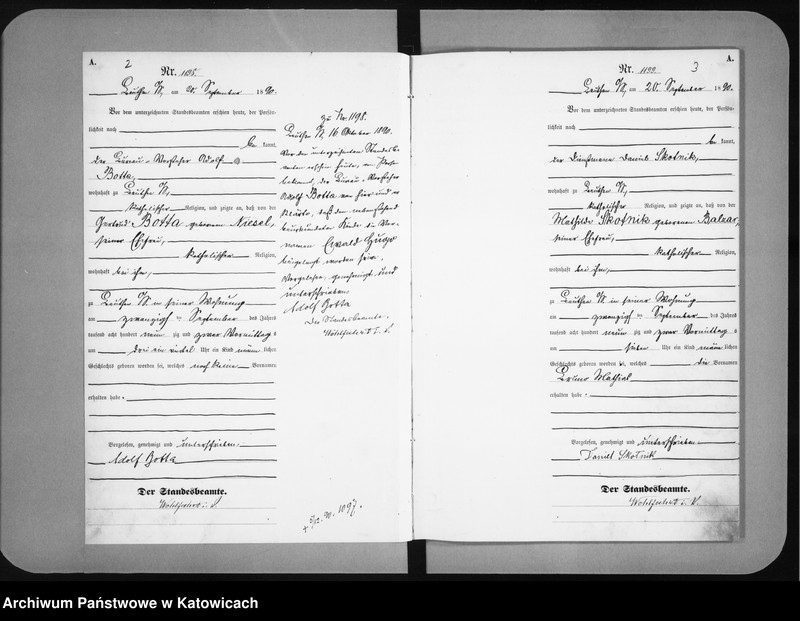 A.
2
Nr. 1198.
Beuthen O/S, am 20. September 1890.
Vor dem unterzeichneten Standesbeamten erschien heute, der Persön-
lichkeit nach
be kannt,
der Bureau-Vorsteher Adolf
Botta,
wohnhaft zu Beuthen O/S,
katholischer Religion, und zeigte an, daß von der
Gertrud Botta geborenen Niesel,
seiner Ehefrau,
katholischer Religion,
wohnhaft bei ihm,
zu Beuthen O/S in seiner Wohnung
am zwanzigsten September des Jahres
tausend acht hundert neun zig und zwar Vormittag s
um drei ein viertel Uhr ein Kind männ lichen
Geschlechts geboren worden sei, welches noch keinen Vornamen
erhalten habe.
Vorgelesen, genehmigt und unterschrieben
Adolf Botta
Der Standesbeamte.
zu Nr. 1198.
Beuthen O/S, 16 Oktober 1890.
Vor dem unterzeichneten Standesbe-
amten erschien heute, der Person
bekannt, der Bureau-Vorsteher
Adolf Botta von hier und er
klärte, daß dem nebenstehend
beurkundeten Kinde die Vor-
namen Ewald Hugo
beigelegt worden sein.
Vorgelesen, genehmigt und
unterschrieben
Adolf Botta
Der Standesbeamte.
A.
3
Nr. 1199.
Beuthen O/S, am 20. September 1890.
Vor dem unterzeichneten Standesbeamten erschien heute, der Persön-
lichkeit nach
be kannt,
der Dienstmann Daniel Skotnik,
wohnhaft zu Beuthen O/S,
katholischer Religion, und zeigte an, daß von der
Mathilde Skotnik geborenen
seiner Ehefrau,
katholischer Religion,
wohnhaft bei ihm,
zu Beuthen O/S in seiner Wohnung
am zwanzigsten September des Jahres
tausend acht hundert neun zig und zwar Vormittag s
um sieben Uhr ein Kind männ lichen
Geschlechts geboren worden sei, welches die Vornamen
Bruno
erhalten habe
Vorgelesen, genehmigt und unterschrieben
Daniel Skotnik
Der Standesbeamte.
Archiwum Państwowe w Katowicach